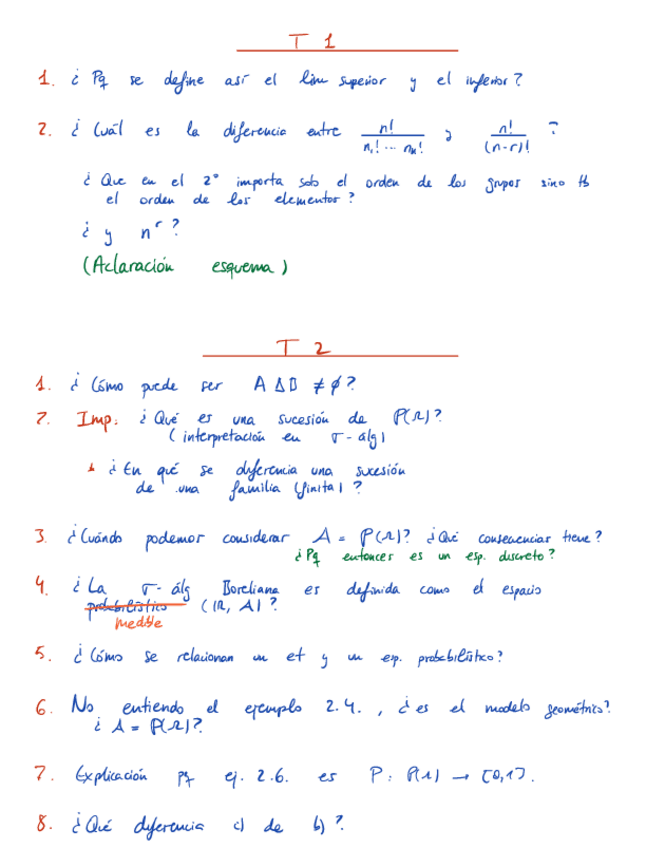 T 1
1. ¿ Pq se define así el lim superior y el inferior?
2. ¿ Cuál es la diferencia entre n!/(n₁! ... nₖ!) y n!/(n-r)! ?
¿ Que en el 2° importa solo el orden de los grupos sino tb
el orden de los elementos?
¿ y n^r ?
(Aclaración esquema)
T 2
1. ¿ Cómo puede ser A Δ B ≠ ∅?
2. Imp: ¿ Qué es una sucesión de P(Ω)?
(interpretación en σ-álg)
¿ En qué se diferencia una sucesión
de una familia (finita)?
3. ¿Cuándo podemos considerar A = P(Ω)? ¿Qué consecuencias tiene?
¿Pq entonces es un esp. discreto?
4. ¿ La σ-álg Boreliana es definida como el espacio
probabilístico (ℝ, A)?
medible
5. ¿ Cómo se relacionan un et y un esp. probabilístico?
6. No entiendo el ejemplo 2.4., ¿es el modelo geométrico?
¿ A = P(Ω)?
7. Explicación pq ej. 2.6. es P: P(Ω) → [0,1].
8. ¿Qué diferencia c) de b)?